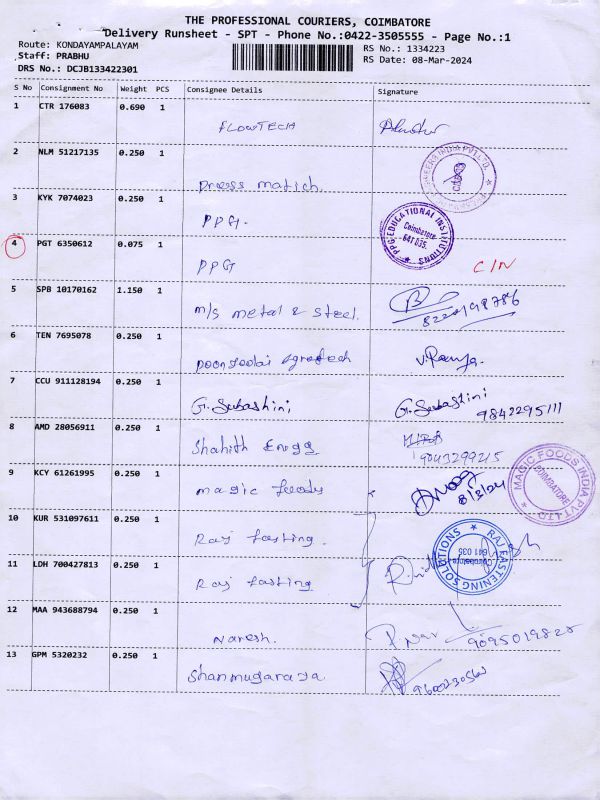 THE PROFESSIONAL COURIERS, COIMBATORE
Delivery Runsheet - SPT - Phone No.:0422-3505555 - Page No.:1
Route: KONDAYAMPALAYAM RS No.: 1334223
Staff: PRABHU RS Date: 08-Mar-2024
DRS No.: DCJB133422301
S No Consignment No Weight PCS Consignee Details Signature
1 CTR 176083 0.690 1
FLOWTECH
2 NLM 51217135 0.250 1
press match.
3 KYK 7074023 0.250 1
PPG.
PPG EDUCATIONAL INSTITUTIONS
Coimbatore
641 035.
4 PGT 6350612 0.075 1
PPG C/N
5 SPB 10170162 1.150 1
m/s metal & steel.
6 TEN 7695078 0.250 1
poongodai agrotech V. Ramya.
7 CCU 911128194 0.250 1
G. Subashini G. Subashini
9842295111
8 AMD 28056911 0.250 1
Shahith Enggs 9043299215
9 KCY 61261995 0.250 1
magic foods 8/3/24
MAGIC FOODS INDIA PVT LTD
COIMBATORE
10 KUR 531097611 0.250 1
Raj fasting.
RAJ FASTENING SOLUTIONS
Coimbatore
641 035
11 LDH 700427813 0.250 1
Raj fasting
12 MAA 943688794 0.250 1
Naresh. 9095019828
13 GPM 5320232 0.250 1
Shanmugaraja.